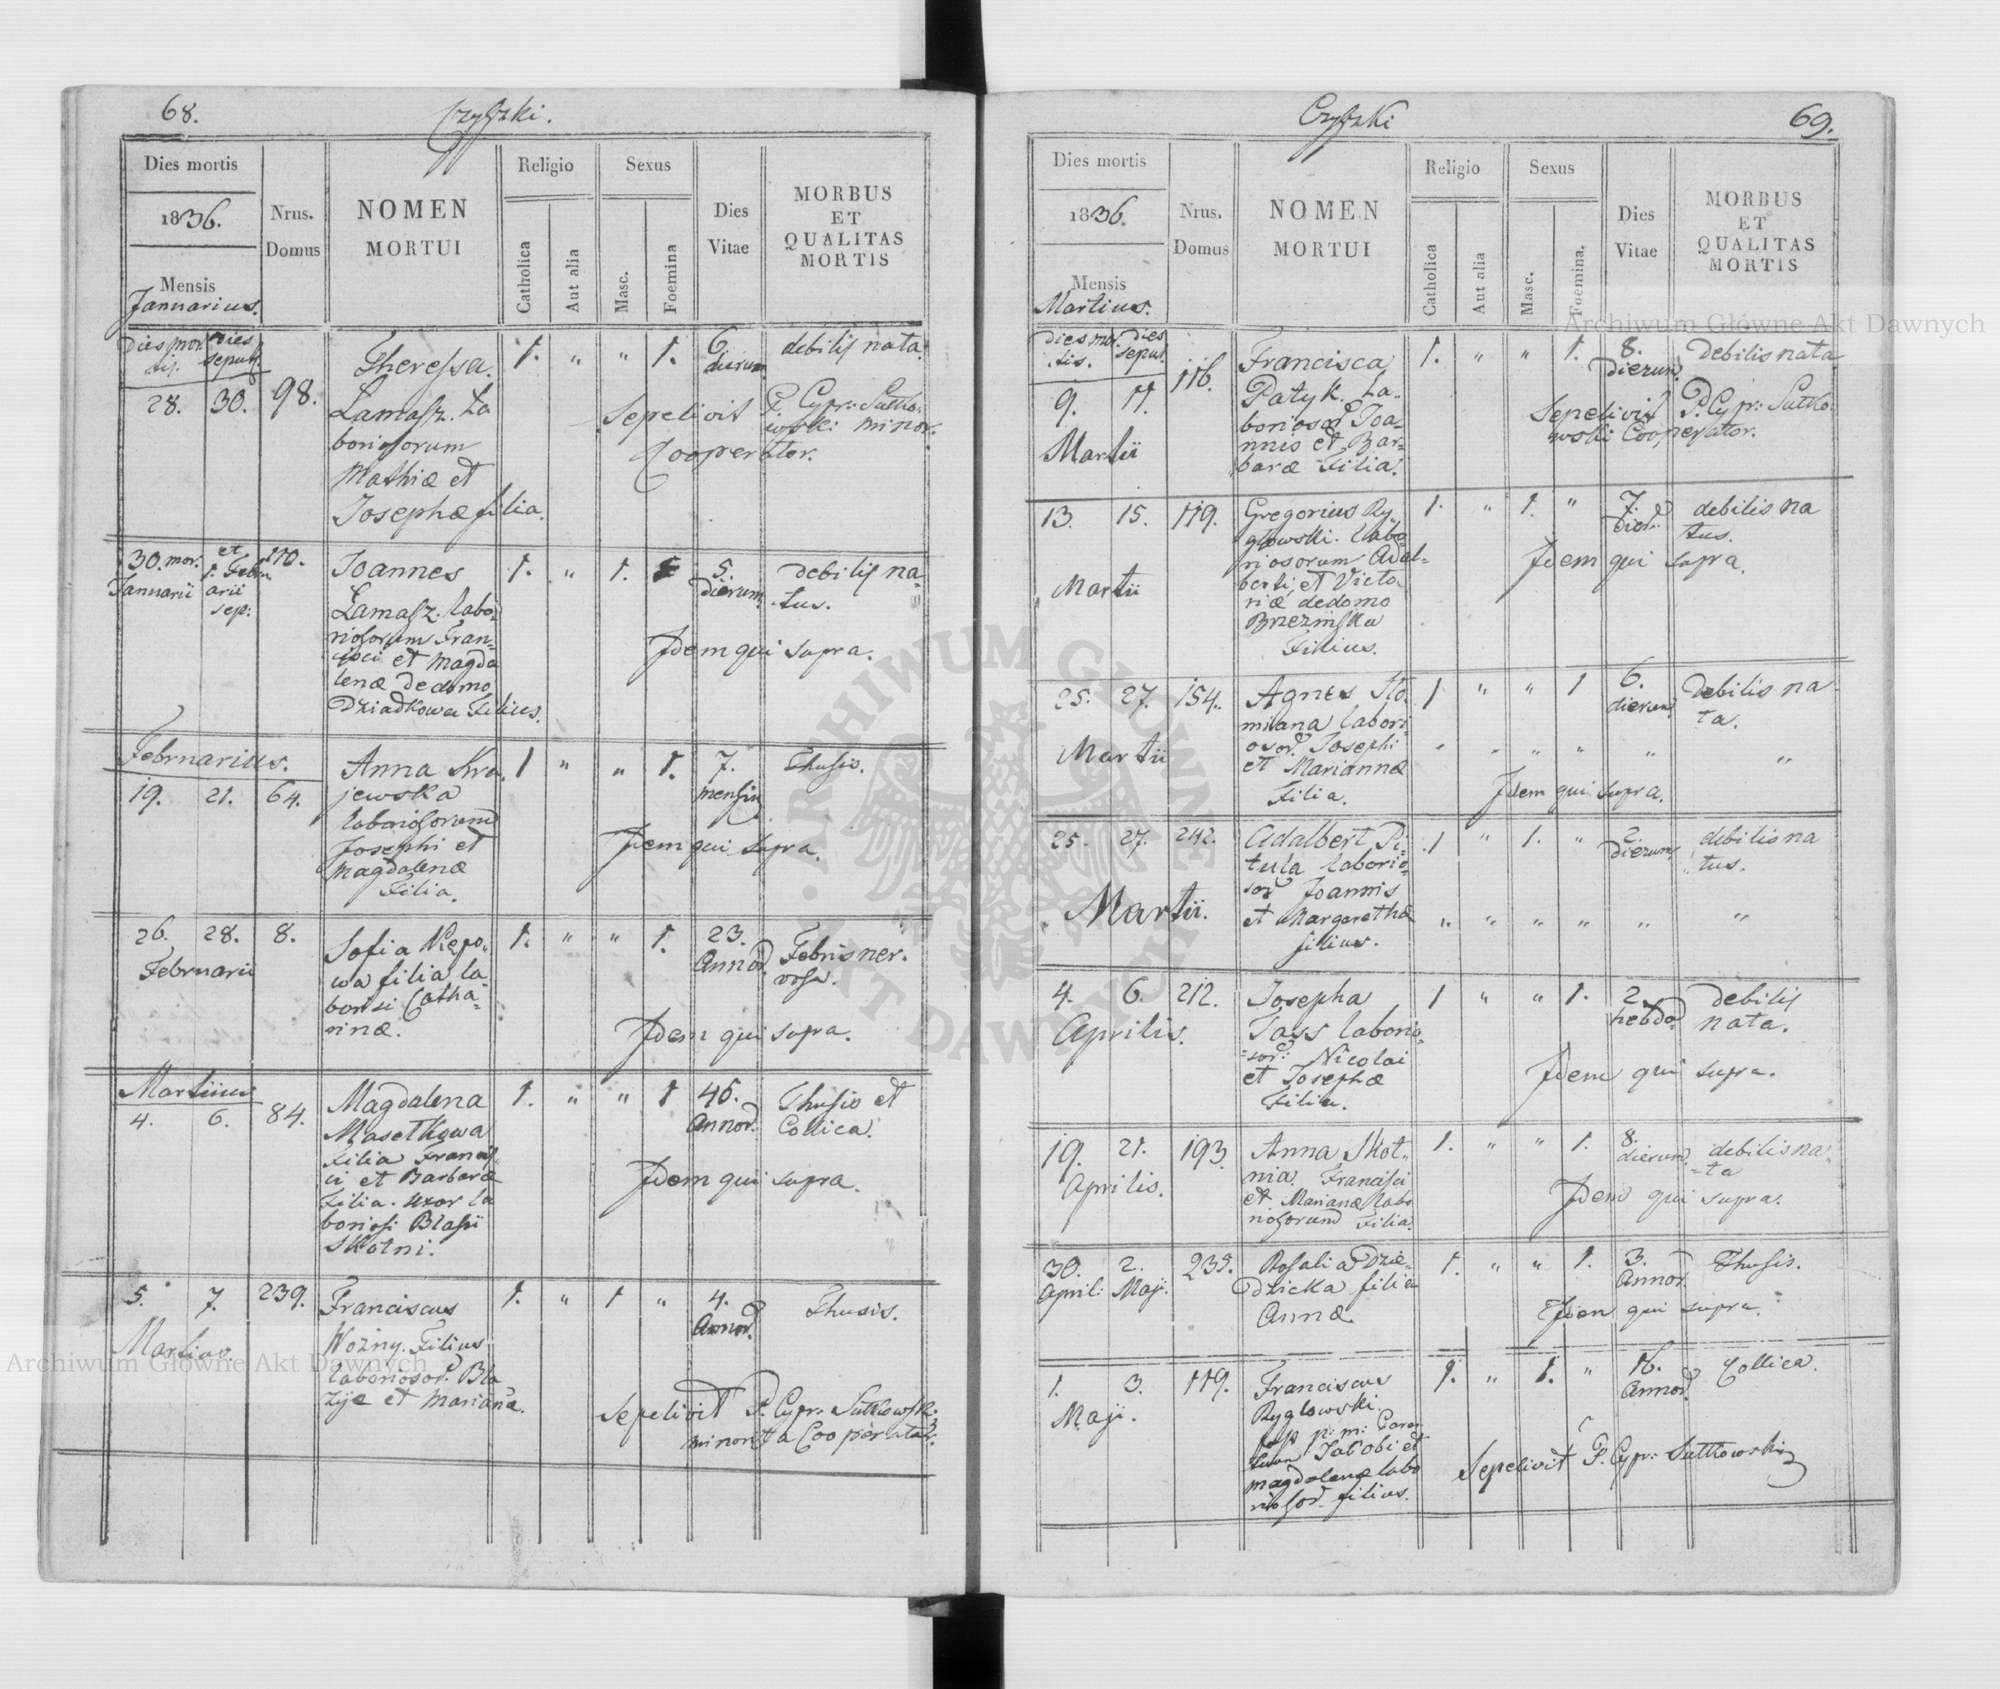 68.
Czyszki.
Dies mortis
1836.
Mensis
Januarius.
Nrus.
Domus
NOMEN
MORTUI
Religio
Catholica
Aut alia
Sexus
Masc.
Foemina
Dies
Vitae
MORBUS
ET
QUALITAS
MORTIS
Dies mor
tis.
Dies
sepul.
28. 30. 98.
Theressa.
Lamasz. La
boriosorum
Mathiæ et
Josephæ filia.
1. " " 1.
6.
dierum.
debilis nata.
Sepelivit P. Cypr: Sutko-
wski minor.
Cooperator.
30. mor. et 110.
Januarii 1. Febru
arii
sep:
Joannes
Lamasz. labo-
riosorum Fran-
cisci et Magda
lenæ de domo
Dziadkowa Filius.
1. " 1.
5.
dierum.
debilis na-
tus.
Idem qui supra.
Februarius.
19. 21. 64.
Anna Kra-
jewska
laboriosorum
Josephi et
Magdalenæ
Filia.
1 " " 1.
7.
mensiu
Thusis.
Idem qui supra.
26. 28. 8.
Februarii
Sofia
wa filia la-
boriosi Catha-
rinæ.
1. " " 1.
23.
Annor.
Febris ner.
vosa.
Idem qui supra.
Martius
4. 6. 84.
Magdalena
Masetkowa
Filia Francis
ci et Barbaræ
Filia. uxor la
boriosi Blasii
Skotni.
1. " " 1
45.
Annor.
Thusis et
Collica.
Idem qui supra.
5. 7. 239.
Martius.
Franciscus
Wozny. Filius
laboriosor. Bla
zije et Mariana.
1. " 1 "
4.
Annor.
Thusis.
Sepelivit P. Cypr: Sutkowski
minorita Cooperator.
Czyszki
69.
Dies mortis
1836.
Mensis
Martius.
Nrus.
Domus
NOMEN
MORTUI
Religio
Catholica
Aut alia
Sexus
Masc.
Foemina.
Dies
Vitae
MORBUS
ET
QUALITAS
MORTIS
Dies mor.
tis.
Dies
sepul.
9. 11. 116.
Martii
Francisca
Patyk. La-
boriosor Joa-
nnis et Bar-
baræ Filia.
1. " " 1.
8.
Dierum
Debilis nata
Sepelivit P. Cypr: Sutko-
wski Cooperator.
13. 15. 119.
Martii
Gregorius Ry-
glowski. labo-
riosorum Adal-
berti, et Victo-
riæ de domo
Brzezinska
Filius.
1. " 1. "
7.
Dier.
debilis na
tus.
Idem qui supra.
25. 27. 154.
Martii
Agnes Ko-
milana labori-
osor. Josephi
et Mariannæ
Filia.
1 " " 1
6.
dierum.
Debilis na-
ta.
Idem qui supra.
25. 27. 242.
Martii.
Adalbert Pi-
tula laborio-
sor Joannis
et Margarethæ
filius.
1 " 1. "
2
dierum
debilis na
tus.
" " " " " "
4. 6. 212.
Aprilis.
Josepha
Tass laborio-
sor: Nicolai
et Josephæ
Filia.
1 " " 1.
2
hebdo-
debilis
nata.
Idem qui supra.
19. 21. 193.
Aprilis.
Anna Skot-
nia. Francisci
et Marianæ labo
riosorum Filia.
1. " " 1.
8.
dierum.
debilis na-
ta
Idem qui supra.
30. 2. 235.
April: Maji.
Rosalia Dzie-
dzicka filia
Annæ.
1. " " 1.
3.
Annor.
Thusis.
Idem qui supra.
1. 3. 119.
Maji.
Franciscus
Ryglowski.
Jacobi et
Magdalenæ labo
riosor. filius.
1. " 1. "
16.
Annor.
Collica.
Sepelivit P. Cypr: Sutkowski
Archiwum Główne Akt Dawnych
Archiwum Główne Akt Dawnych
ARCHIWUM GŁÓWNE AKT DAWNYCH